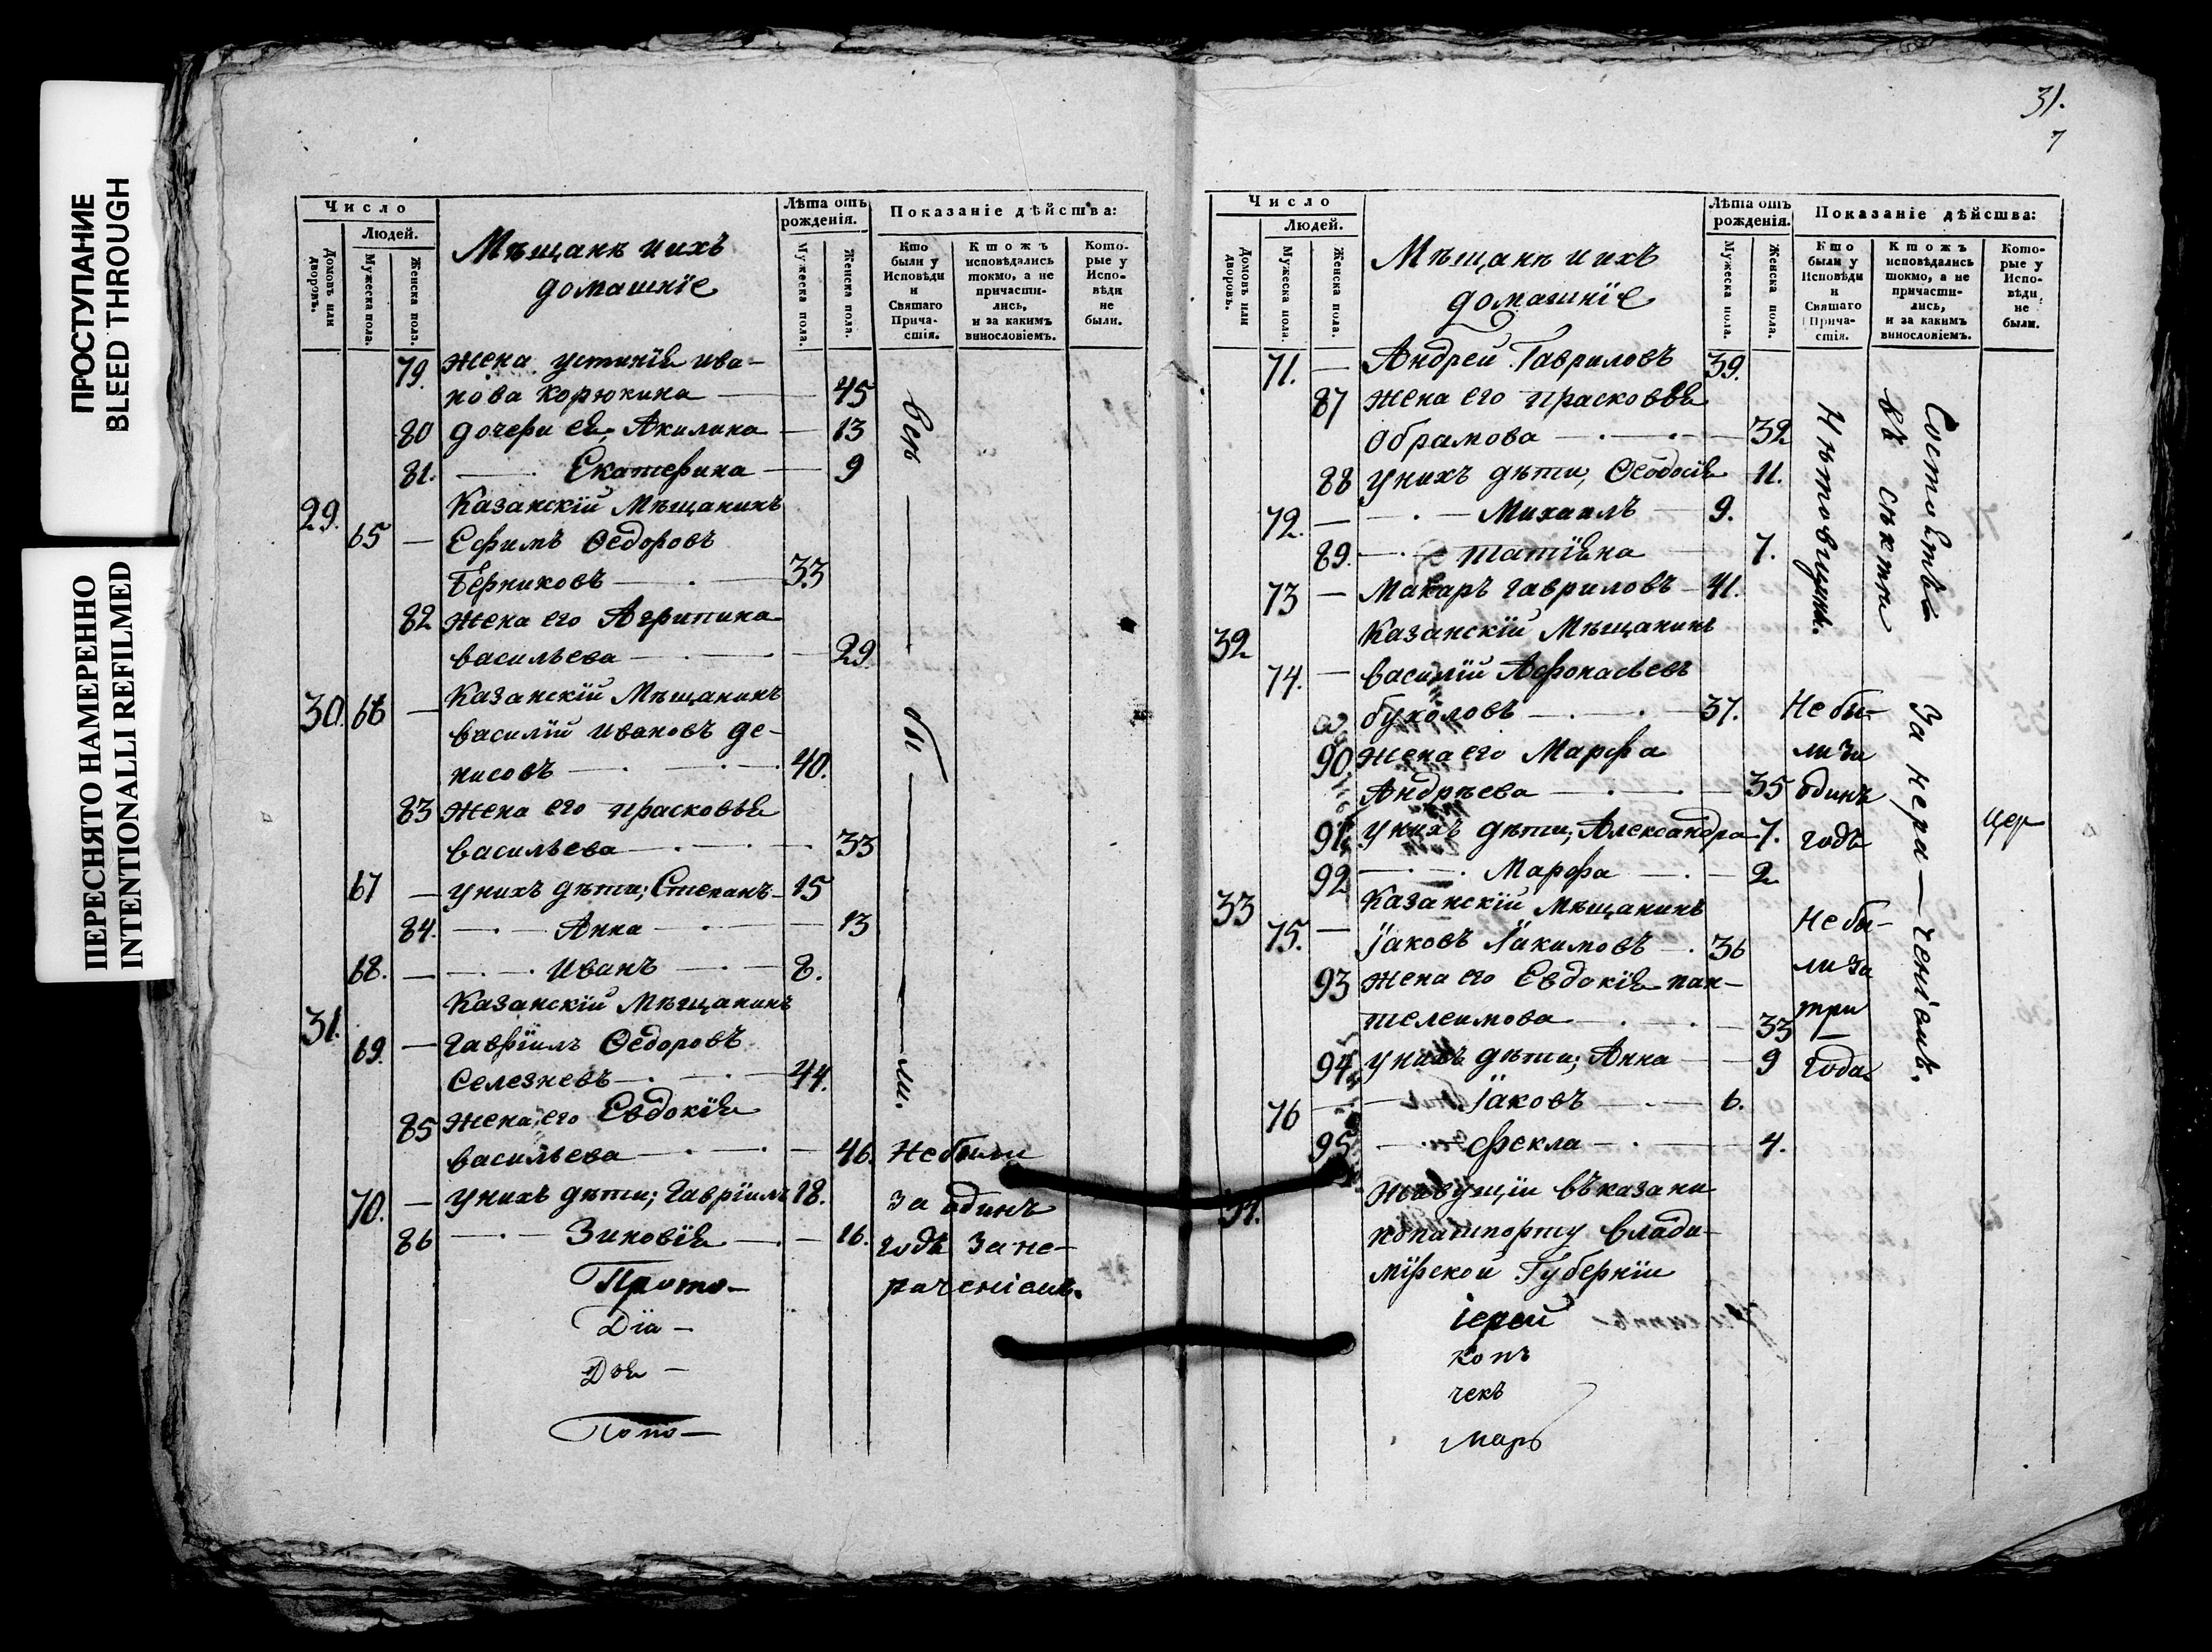 ПРОСТУПАНИЕ
BLEED THROUGH
ПЕРЕСНЯТО НАМЕРЕННО
INTENTIONALLI REFILMED
Число
Людей.
Домовъ или дворовъ.
Мужеска пола.
Женска пола.
Мѣщанѣ ихъ
домашніе
Лѣта отъ рождения.
Мужеска пола.
Женска пола.
Показаніе дѣйства:
Кто были у Исповѣди и Святаго Причастія.
Ктожъ исповѣдались токмо, а не причастились, и за какимъ винословіемъ.
Которые у Исповѣди не были.
79. жена устинія ива-
нова Корюкина 45
80 дочери ея, Акилина 13
81. Екатерина 9
29. Казанскій Мѣщанинъ
65 Ефимъ Ѳедоровъ
Берниковъ 33
82 жена его Агрипина
васильева 29
30. 66 Казанскій Мѣщанинъ
василій ивановъ де-
нисовъ 40.
83 жена его прасковья
васильева 33
67 у нихъ дѣти; Степанъ 15
84. Анна 13
68. иванъ 8.
31. Казанскій Мѣщанинъ
69. гавріилъ Ѳедоровъ
Селезневъ 44.
85 жена его Евдокія
васильева 46.
70. у нихъ дѣти; гавріилъ 18.
86 Зиновія 16.
всѣ бы ли.
Не были
за один
годъ за не-
раченіемъ.
Прото-
Діа-
Дья-
Поно-
31.
7
Число
Людей.
Домовъ или дворовъ.
Мужеска пола.
Женска пола.
Мѣщанѣ и ихъ
домашніе
Лѣта отъ рождения.
Мужеска пола.
Женска пола.
Показаніе дѣйства:
Кто были у Исповѣди и Святаго Причастія.
Ктожъ исповѣдались токмо, а не причастились, и за какимъ винословіемъ.
Которые у Исповѣди не были.
71. Андрей Гавриловъ 39.
87 жена его прасковья
Обрамова 32
88 у нихъ дѣти, Ѳеодосія 11.
72. Михаилъ 9.
89. татіяна 7.
73 Макаръ гавриловъ 41.
32 Казанскій Мѣщанинъ
74. василій Афонасьевъ
буколовъ 37.
90 жена его Марфа
Андрѣева 35
91. у нихъ дѣти, Александра 7.
92 Марфа 2
33 Казанскій мѣщанинъ
75. Іаковъ Іакимовъ 36
93 жена его Евдокія пан-
телеимова 33
94 у нихъ дѣти; Анна 9
76 Іаковъ 6.
95 фекла 4.
Состоятъ
въ сѣкти
Нѣтовщинѣ.
Не бы-
ли за
один
годъ
Не бы-
ли за
три
года
За нера-ченіемъ.
цер
живущіи въ казани
по пашпорту влади-
мірской Губерніи
іерей
конъ
чекъ
марь